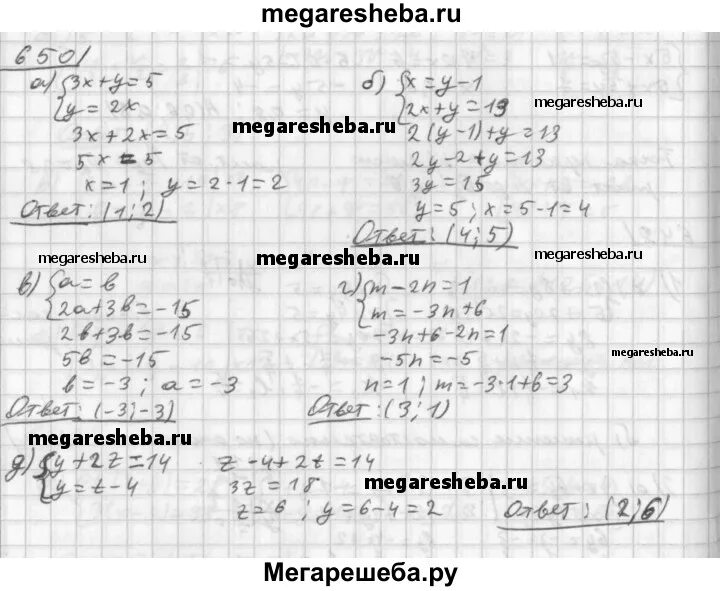 megaresheba.ru
650)
а) {3x+y=5
{y=2x
3x+2x=5
5x=5
x=1; y=2·1=2
Ответ: (1; 2)
б) {x=y-1
{2x+y=13
2(y-1)+y=13
2y-2+y=13
3y=15
y=5; x=5-1=4
Ответ: (4; 5)
megaresheba.ru
megaresheba.ru
megaresheba.ru
megaresheba.ru
в) {a=b
{2a+3b=-15
2b+3b=-15
5b=-15
b=-3; a=-3
Ответ: (-3;-3)
г) {m-2n=1
{m=-3n+6
-3n+6-2n=1
-5n=-5
n=1; m=-3·1+6=3
Ответ: (3; 1)
megaresheba.ru
megaresheba.ru
megaresheba.ru
д) {y+2z=14
{y=z-4
z-4+2z=14
3z=18
z=6; y=6-4=2
Ответ: (2; 6)
Мегарешеба.ру